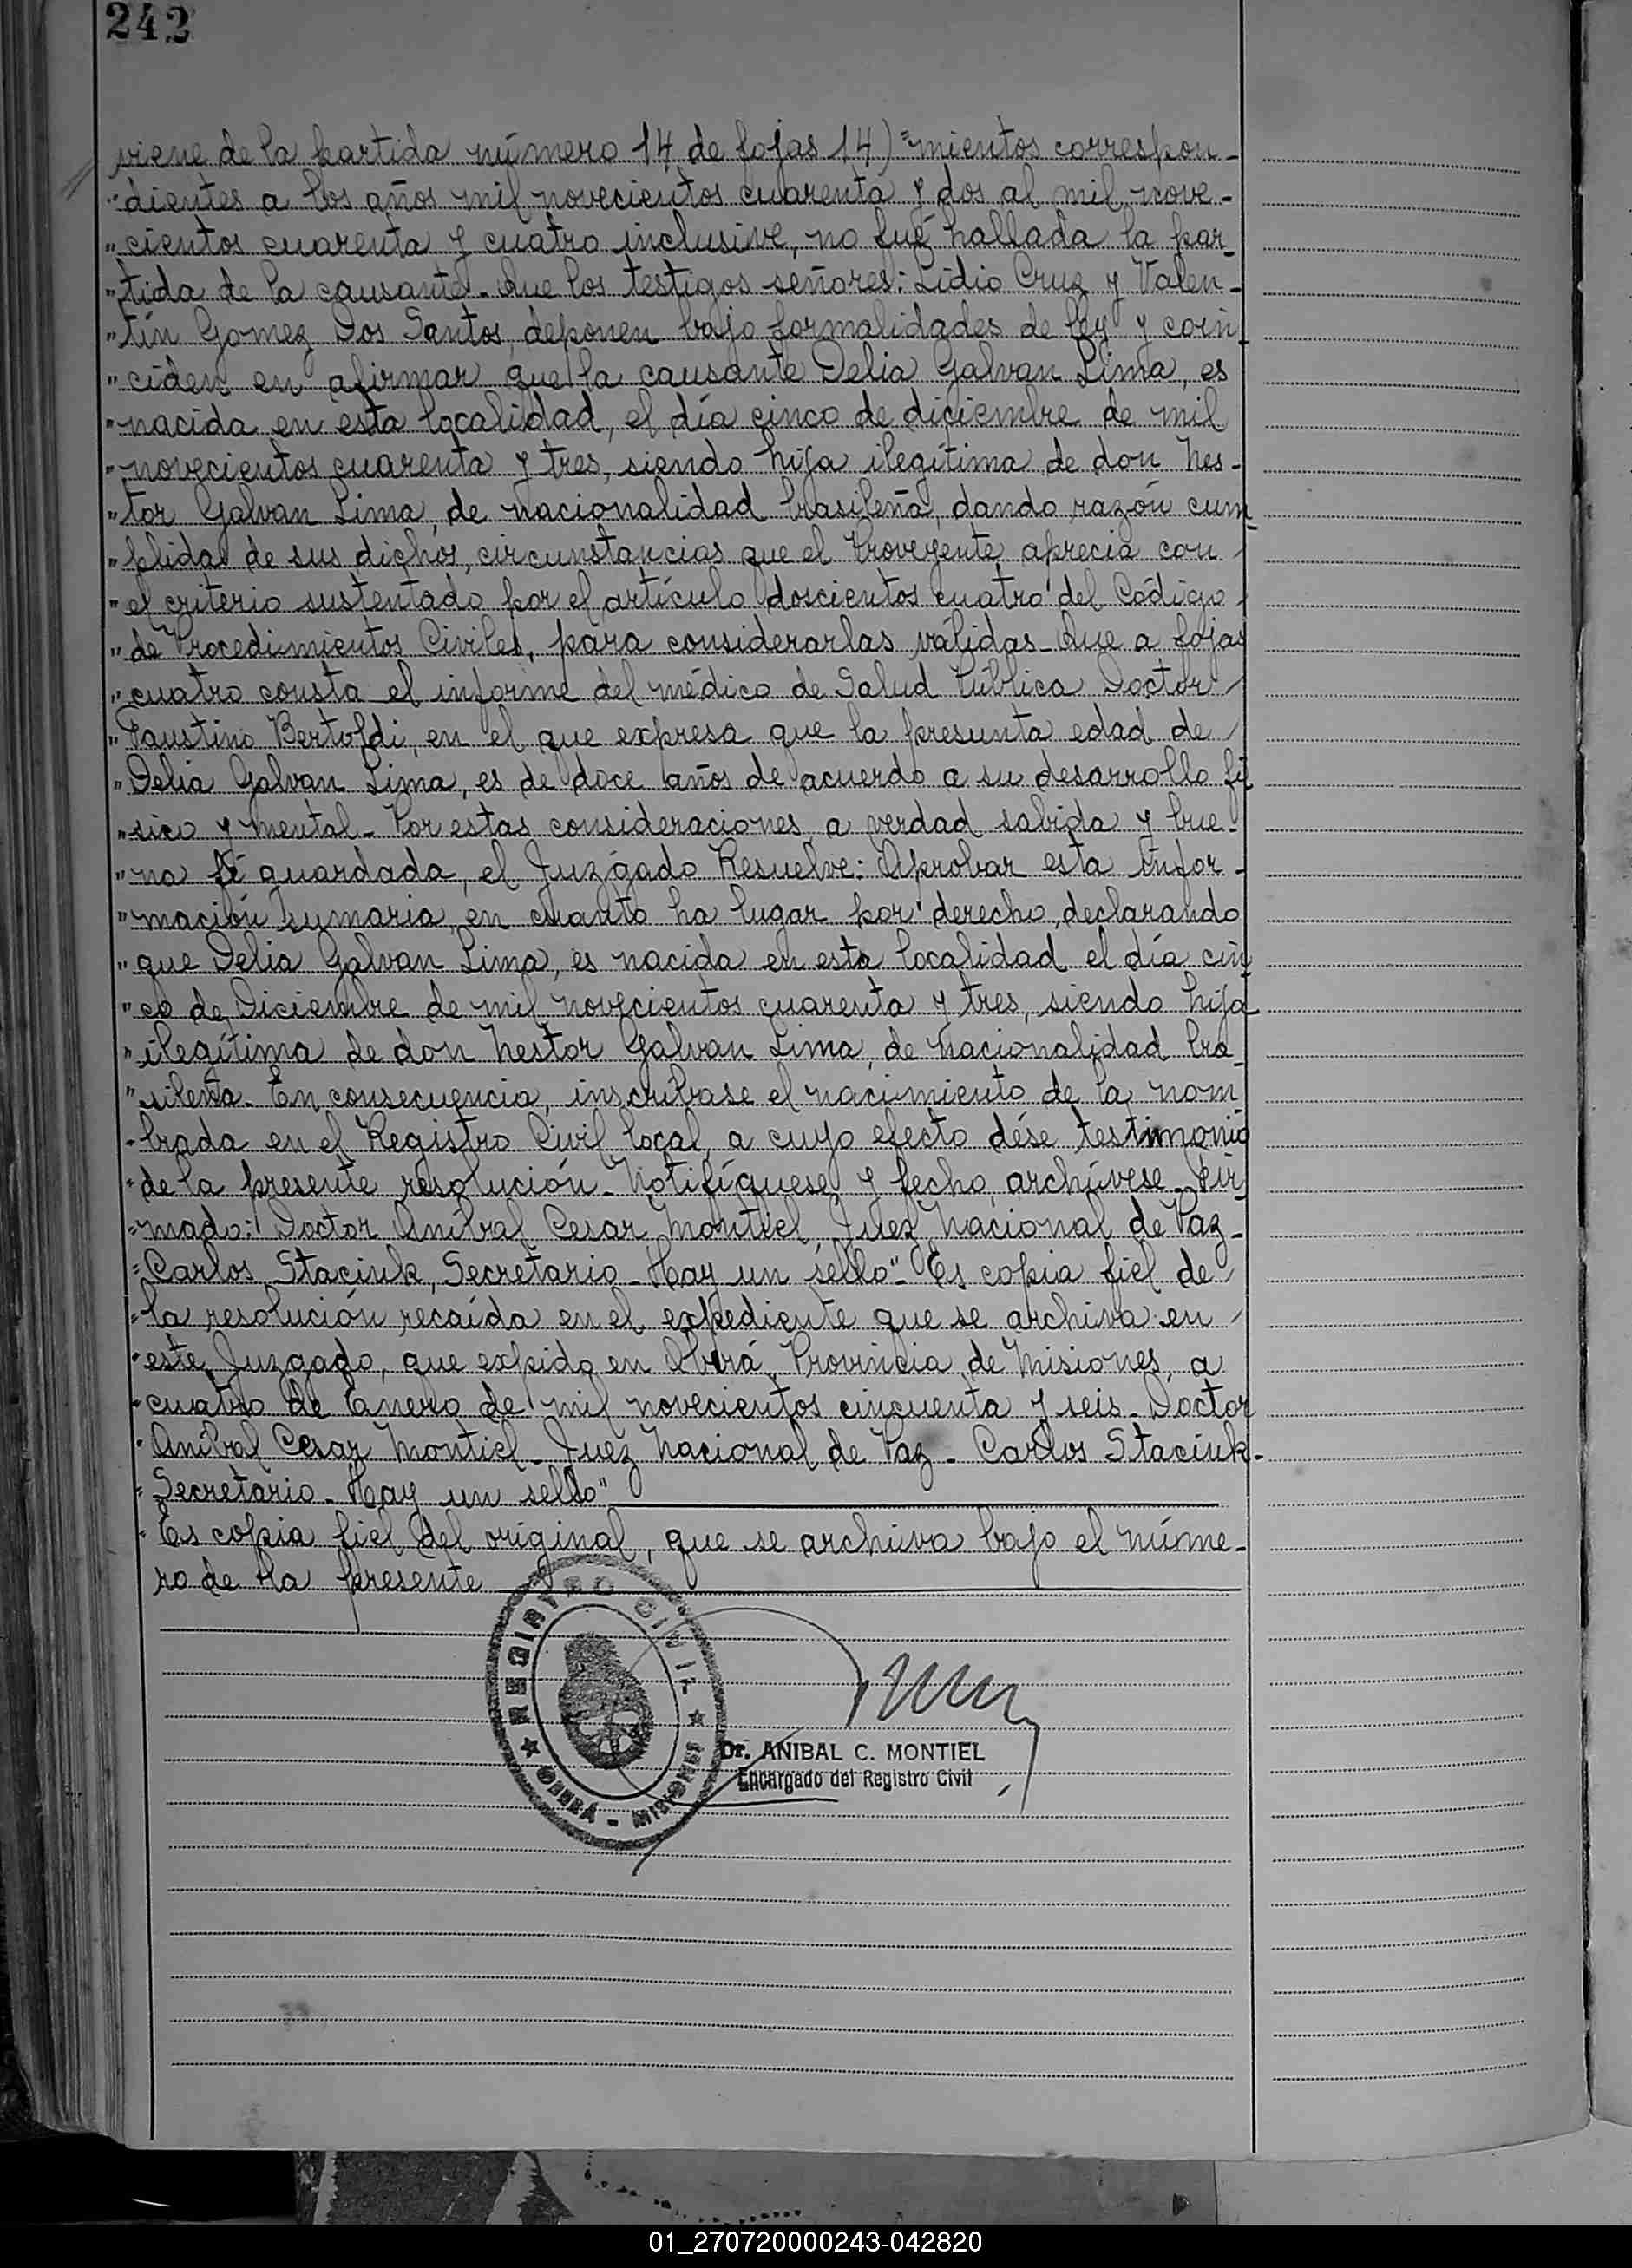 242
viene de la partida número 14 de fojas 14) "mientos correspon-
"dientes a los años mil novecientos cuarenta y dos al mil nove-
"cientos cuarenta y cuatro inclusive, no fué hallada la par-
"tida de la causante. Que los testigos señores: Lidio Cruz y Valen-
"tín Gomez Dos Santos, deponen bajo formalidades de ley y coin
"ciden en afirmar que la causante Delia Galvan Lima, es
"nacida en esta localidad, el día cinco de diciembre de mil
"novecientos cuarenta y tres, siendo hija ilegítima de don Nes-
"tor Galvan Lima, de nacionalidad brasileña, dando razón cum
"plida de sus dichos, circunstancias que el Proveyente aprecia con
"el criterio sustentado por el artículo doscientos cuatro del Código
"de Procedimientos Civiles, para considerarlas válidas- Que a fojas
"cuatro consta el informe del médico de Salud Pública Doctor
"Faustino Bertoldi, en el que expresa que la presunta edad de
"Delia Galvan Lima, es de doce años de acuerdo a su desarrollo fí
"sico y mental- Por estas consideraciones a verdad sabida y bue-
"na fé guardada, el Juzgado Resuelve: Aprobar esta infor-
"mación sumaria en cuanto ha lugar por derecho, declarando
"que Delia Galvan Lima, es nacida en esta localidad el día cin
"co de Diciembre de mil novecientos cuarenta y tres, siendo hija
"ilegítima de don Nestor Galvan Lima, de nacionalidad bra-
"sileña. En consecuencia, inscríbase el nacimiento de la nom
"brada en el Registro Civil local, a cuyo efecto dése testimonio
"de la presente resolución- Notifíquese y fecho, archívese. Fir
"mado: Doctor Anibal Cesar Montiel, Juez Nacional de Paz-
"Carlos Staciuk, Secretario- Hay un sello"- Es copia fiel de
"la resolución recaída en el expediente que se archiva en
"este Juzgado, que expido en Oberá, Provincia de Misiones, a
"cuatro de Enero de mil novecientos cincuenta y seis- Doctor
"Anibal Cesar Montiel- Juez Nacional de Paz- Carlos Staciuk-
"Secretario- Hay un sello"
"Es copia fiel del original, que se archiva bajo el núme-
ro de la presente
REGISTRO CIVIL
OBERÁ - MISIONES
Dr. ANIBAL C. MONTIEL
Encargado del Registro Civil
01_270720000243-042820